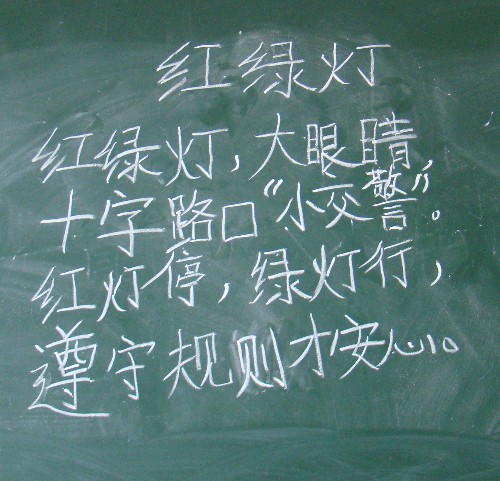 红绿灯
红绿灯,大眼睛,
十字路口“小交警”。
红灯停,绿灯行,
遵守规则才安心。